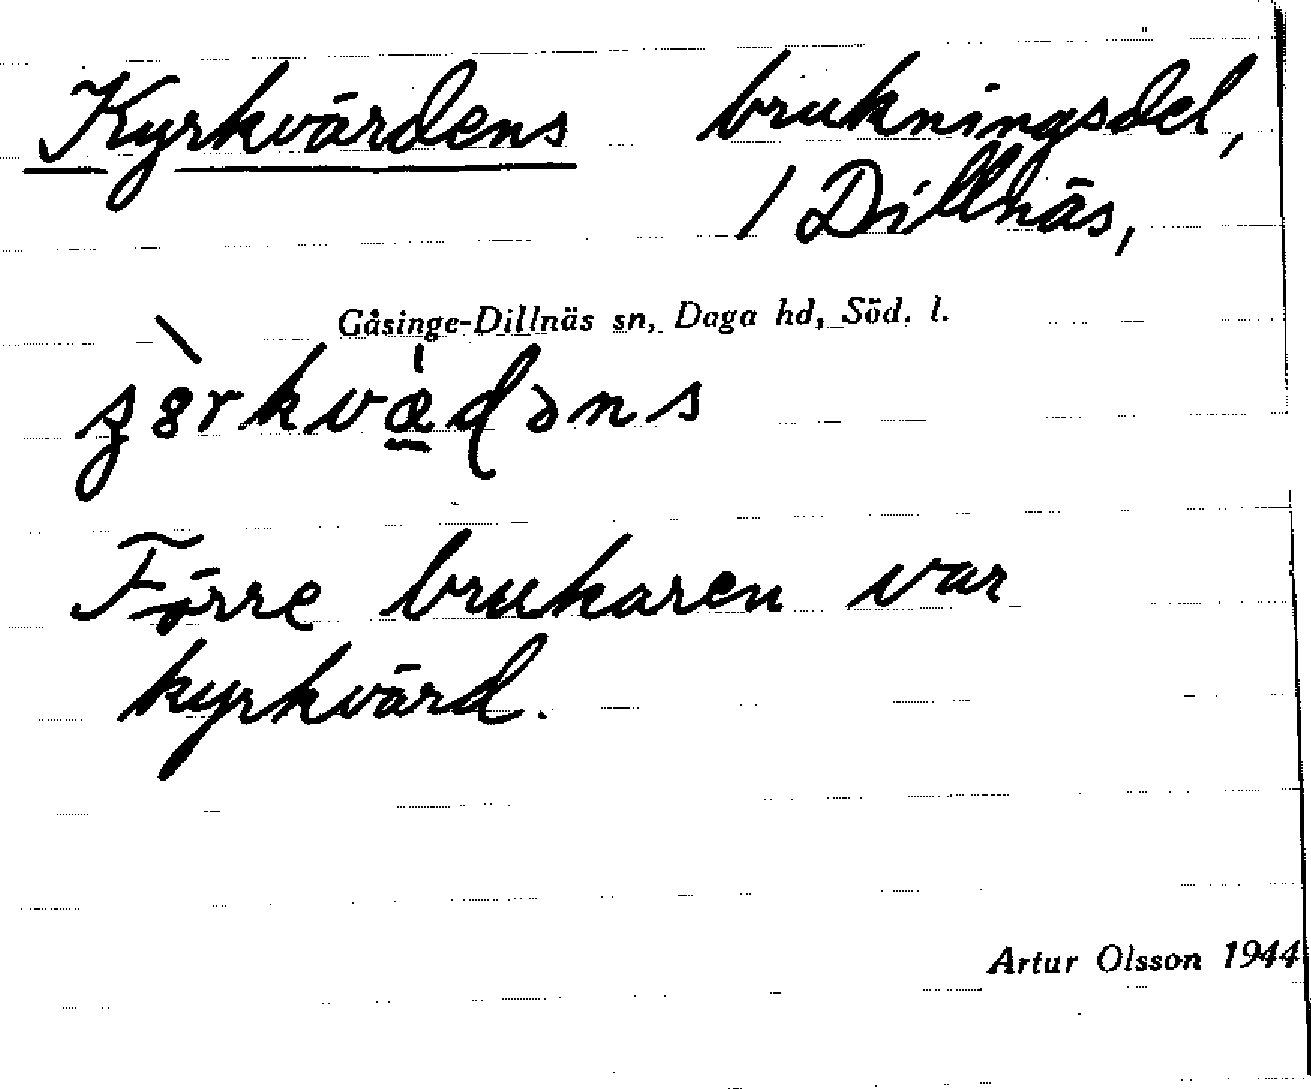 Kyrkvärdens brukningsdel,
1 Dillnäs,
Gåsinge-Dillnäs sn, Daga hd, Söd. l.
Förre brukaren var
kyrkvärd.
Artur Olsson 1944